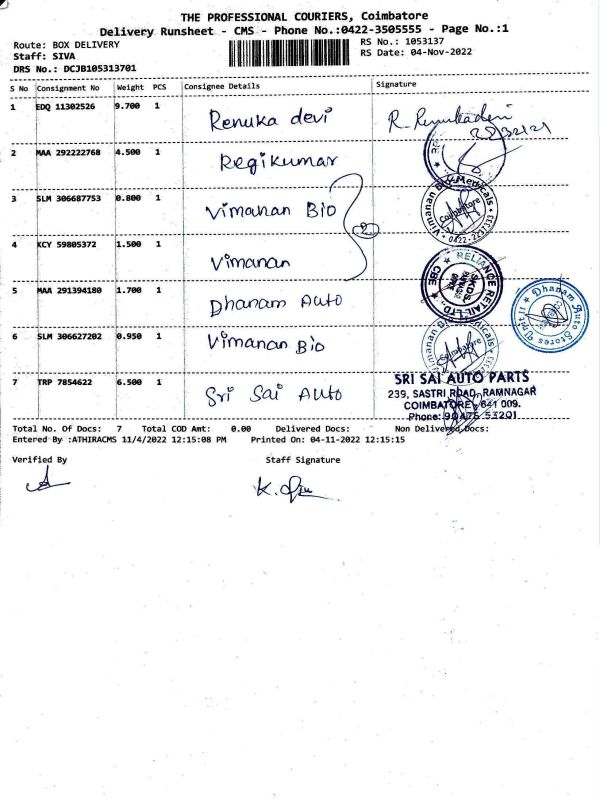 THE PROFESSIONAL COURIERS, Coimbatore
Delivery Runsheet - CMS - Phone No.:0422-3505555 - Page No.:1
Route: BOX DELIVERY RS No.: 1053137
Staff: SIVA RS Date: 04-Nov-2022
DRS No.: DCJB105313701
S No Consignment No Weight PCS Consignee Details Signature
1 EDQ 11302526 9.700 1 Renuka devi R. Renukadevi
2 MAA 292222768 4.500 1 Regikumar
3 SLM 306687753 0.800 1 Vimanan Bio
Coimbatore
4 KCY 59805372 1.500 1 Vimanan
RELIANCE RETAIL LTD., CBE
5 MAA 291394180 1.700 1 Dhanam Auto
Dhanam Auto Stores Unit II
6 SLM 306627202 0.950 1 Vimanan Bio
Coimbatore
7 TRP 7854622 6.500 1 Sri Sai Auto
SRI SAI AUTO PARTS
239, SASTRI ROAD, RAMNAGAR
COIMBATORE, 641 009.
Phone: 90475 53201
Total No. Of Docs: 7 Total COD Amt: 0.00 Delivered Docs: Non Delivered Docs:
Entered By :ATHIRACMS 11/4/2022 12:15:08 PM Printed On: 04-11-2022 12:15:15
Verified By Staff Signature